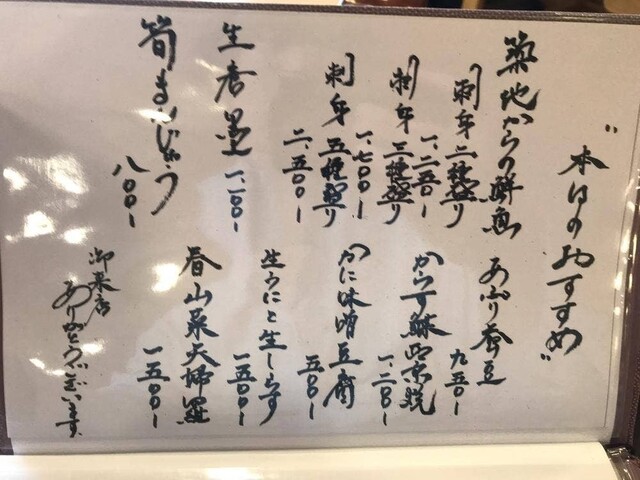 "本日のおすすめ"
築地からの鮮魚
刺身二種盛り
一、二五〇ー
刺身三種盛り
一、七〇〇ー
刺身五種盛り
二、五〇〇ー
一、一〇〇ー
筍まんじゅう
八〇〇ー
あぶり蚕豆
九五〇ー
からす鰈西京焼
一、二〇〇ー
かに味噌豆腐
五〇〇ー
生うにと生しらす
一、五〇〇ー
春山菜天婦羅
一、五〇〇ー
御来店
ありがとうございます。